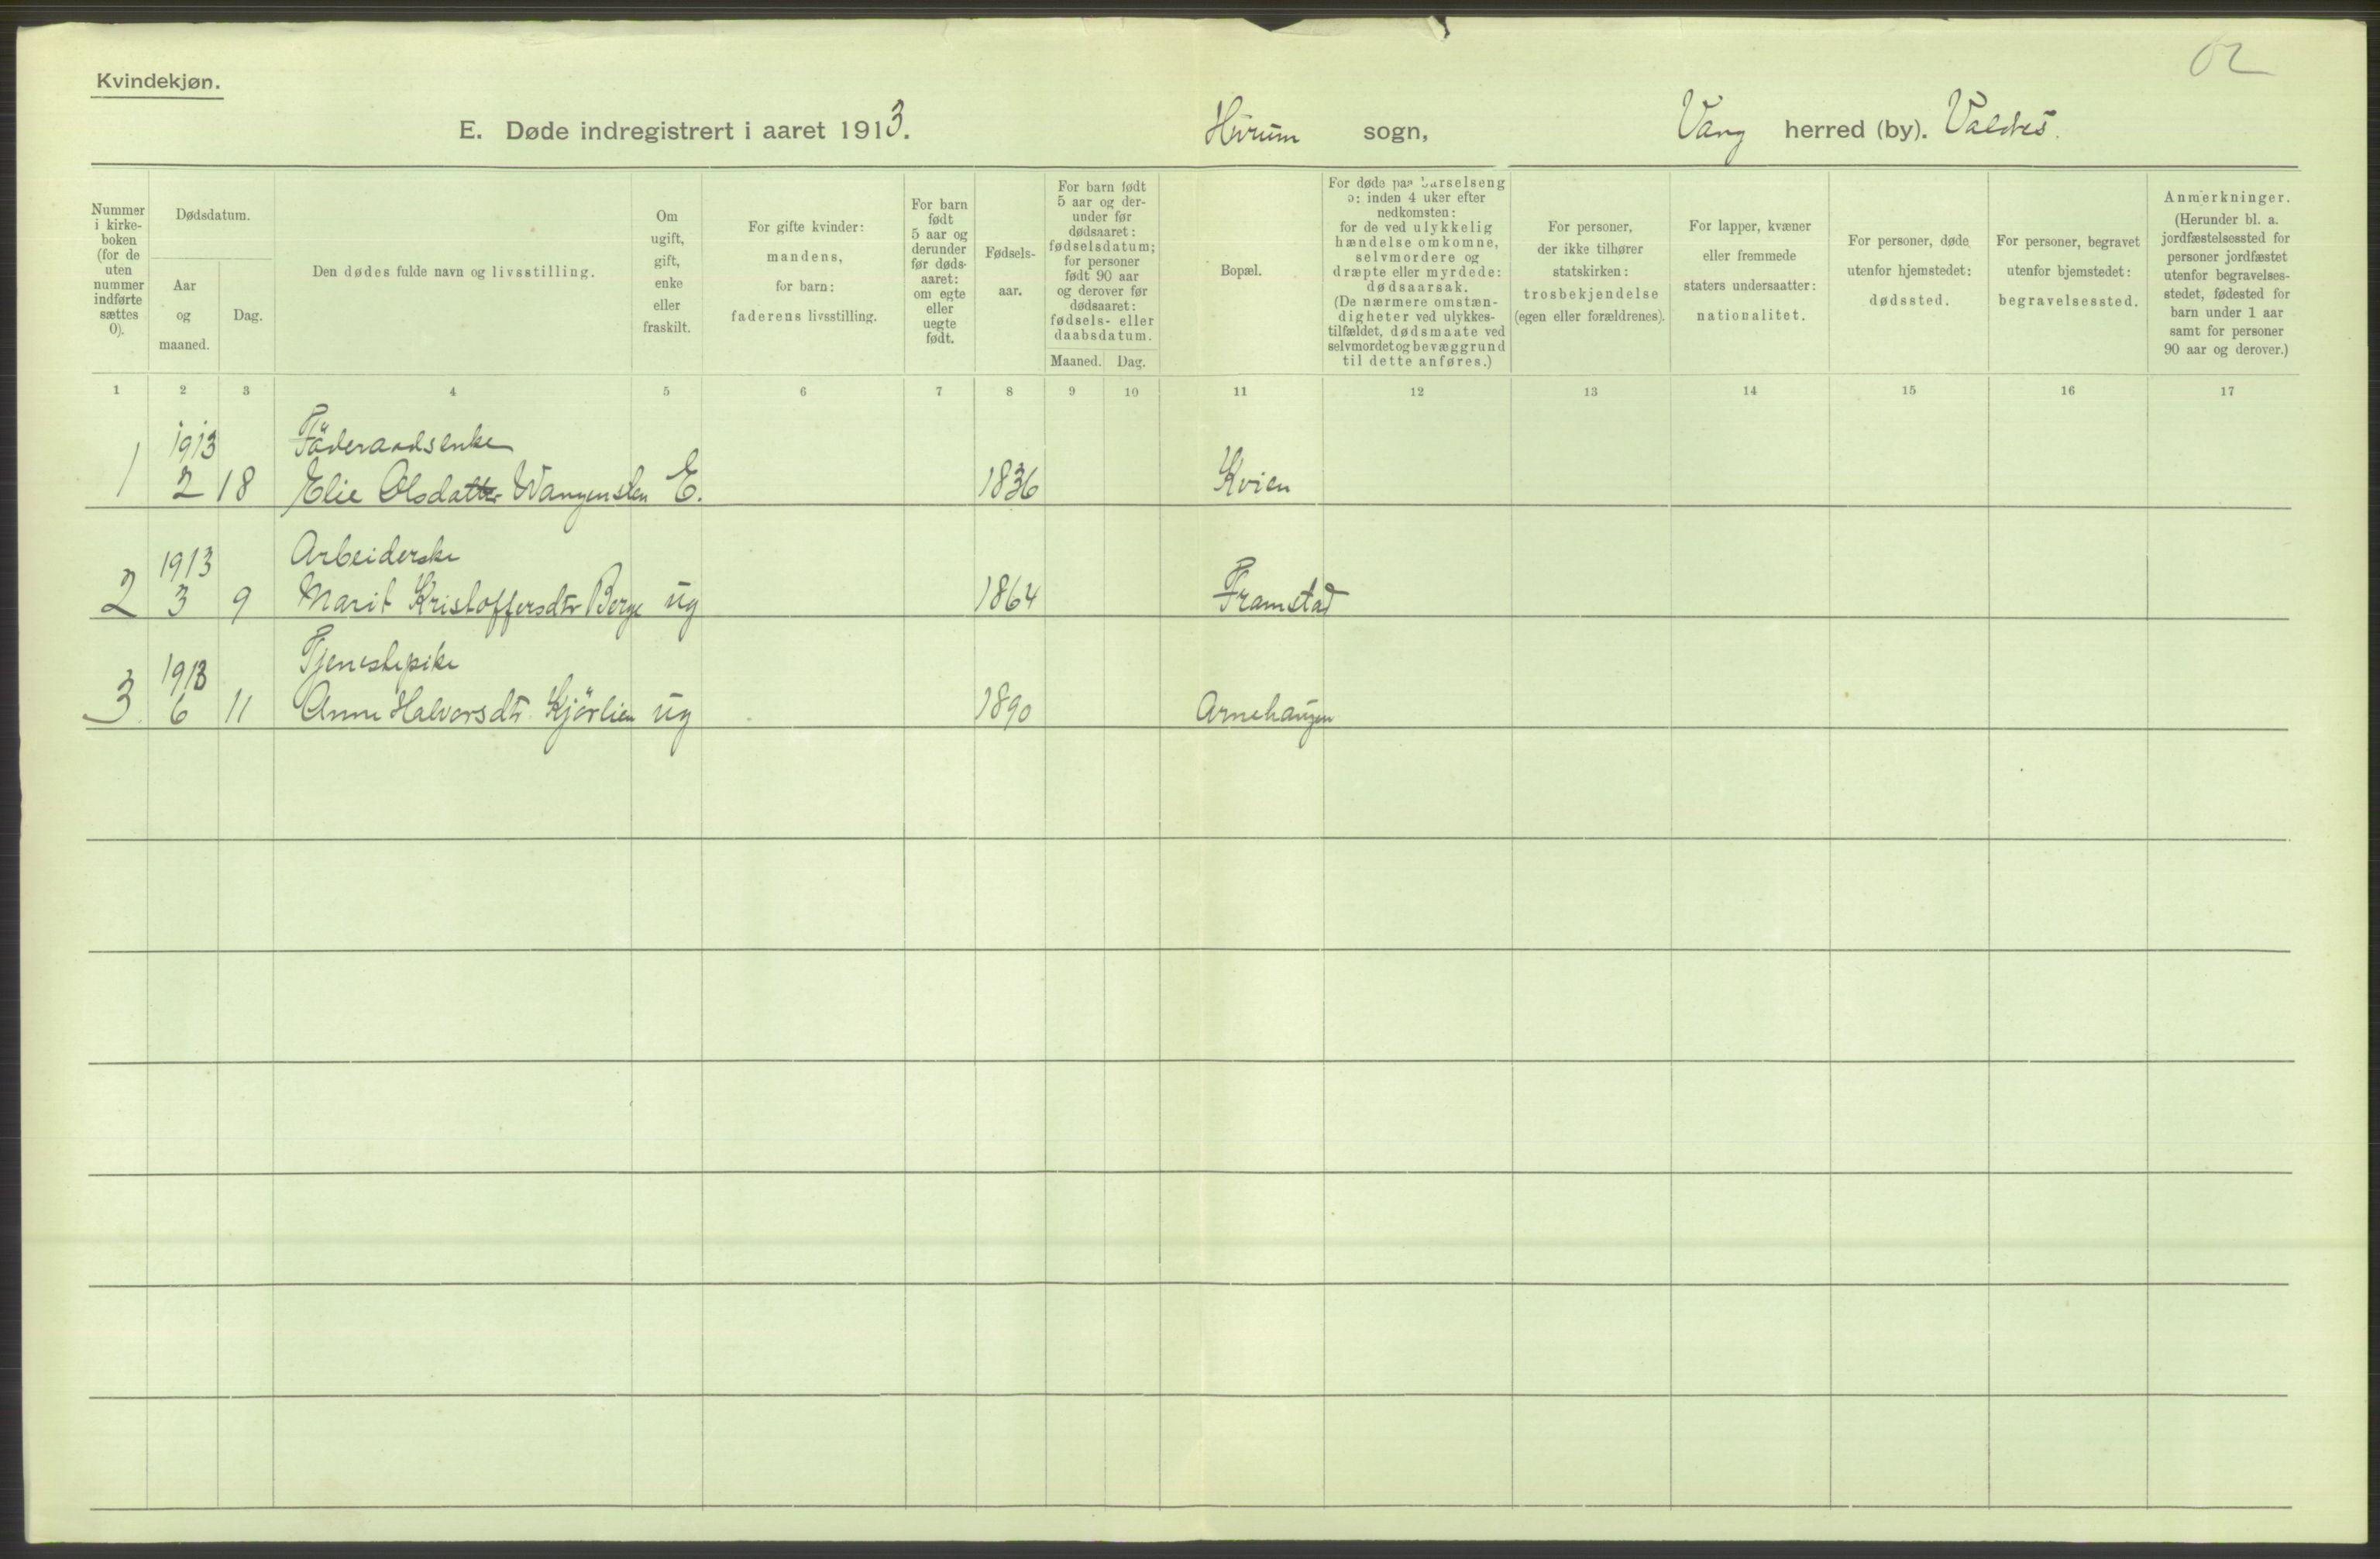 02
Kvindekjøn.
E. Døde indregistrert i aaret 1913. Hurum sogn, Vang herred (by). Valdres.
Nummer i kirke-boken (for de uten nummer indførte sættes 0).
Dødsdatum.
Aar og maaned.
Dag.
Den dødes fulde navn og livsstilling.
Om ugift, gift, enke eller fraskilt.
For gifte kvinder: mandens, for barn: faderens livsstilling.
For barn født 5 aar og derunder før døds-aaret: om egte eller uegte født.
Fødsels-aar.
For barn født 5 aar og der-under før dødsaaret: fødselsdatum; for personer født 90 aar og derover før dødsaaret: fødsels- eller daabsdatum.
Maaned. Dag.
Bopæl.
For døde paa barselseng ɔ: inden 4 uker efter nedkomsten: for de ved ulykkelig hændelse omkomne, selvmordere og dræpte eller myrdede: dødsaarsak. (De nærmere omstæn-digheter ved ulykkes-tilfældet, dødsmaate ved selvmordet og bevæggrund til dette anføres.)
For personer, der ikke tilhører statskirken: trosbekjendelse (egen eller forældrenes).
For lapper, kvæner eller fremmede staters undersaatter: nationalitet.
For personer, døde utenfor hjemstedet: dødssted.
For personer, begravet utenfor bjemstedet: begravelsessted.
Anmerkninger. (Herunder bl. a. jordfæstelsessted for personer jordfæstet utenfor begravelses-stedet, fødested for barn under 1 aar samt for personer 90 aar og derover.)
1 2 3 4 5 6 7 8 9 10 11 12 13 14 15 16 17
1913 Föderaadsenke
1 2 18 Elie Olsdatter Wangensten E. 1836 Kvien
1913 Arbeiderske
2 3 9 Marit Kristoffersdtr Berge ug 1864 Framstad
1913 Tjenestepike
3. 6 11 Anne Halvorsdtr. Kjörlien ug 1890 Arnehaugen